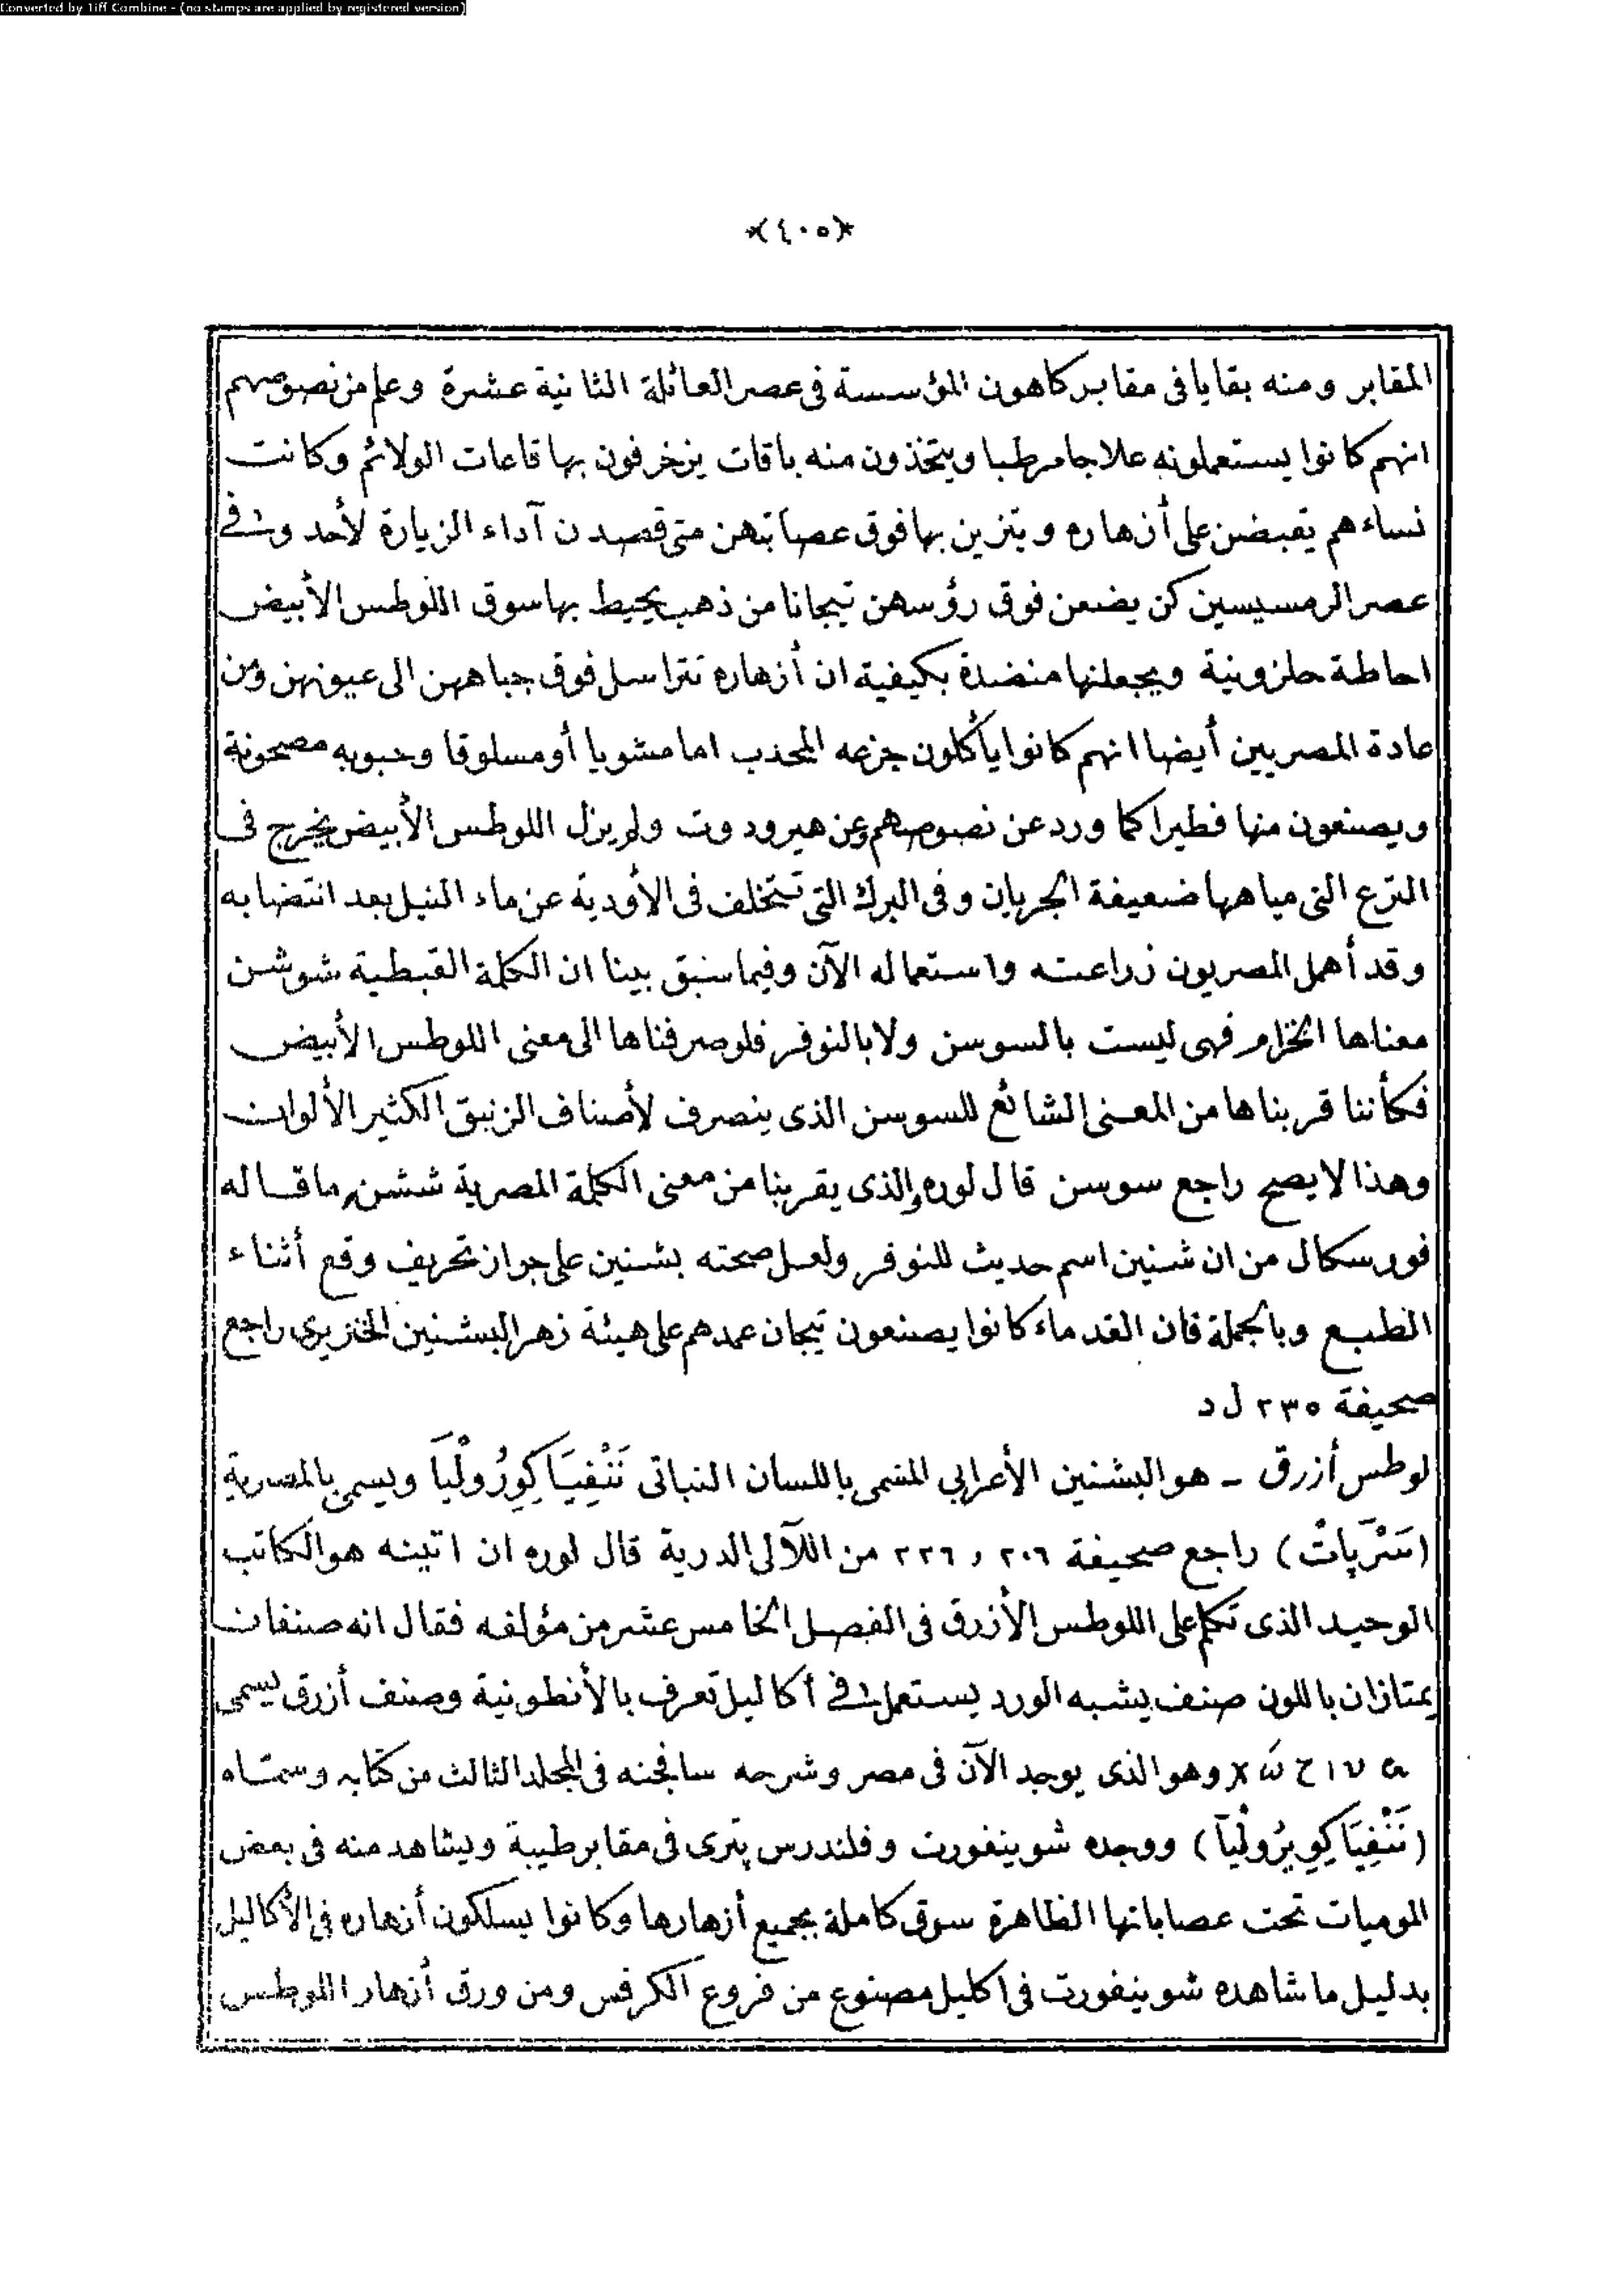 Converted by Tiff Combine - (no stamps are applied by registered version)
*(٤٠٥)*
المقابر ومنه بقايا فى مقابر كاهون المؤسسة فى عصر العائلة الثانية عشرة وعلم من نصوصهم
انهم كانوا يستعملونه علاجا مرطبا ويتخذون منه باقات يزخرفون بها قاعات الولائم وكانت
نساءهم يقبضن على أزهاره ويتزين بها فوق عصابتهن متى قصدن آداء الزيارة لأحد وفى
عصر الرمسيسين كن يضعن فوق رؤسهن تيجانا من ذهب يحيط بها سوق اللوطس الأبيض
احاطة حلزونية ويجعلنها منضدة بكيفية ان أزهاره تتراسل فوق جباههن الى عيونهن ومن
عادة المصريين أيضا انهم كانوا يأكلون جزعه المحدب اما مشويا أو مسلوقا وحبوبه مصحونة
ويصنعون منها فطيرا كما ورد عن نصوصهم وعن هيرودوت ولم يزل اللوطس الأبيض يخرج فى
الترع التى مياهها ضعيفة الجريان وفى البرك التى تتخلف فى الأودية عن ماء النيل بعد انتضابه
وقد أهمل المصريون زراعته واستعماله الآن وفيما سبق بينا ان الكلمة القبطية شوشن
معناها الخزام فهى ليست بالسوسن ولا بالنوفر فلو صرفناها الى معنى اللوطس الأبيض
فكأننا قربناها من المعنى الشائع للسوسن الذى ينصرف لأصناف الزنبق الكثير الألوان
وهذا لا يصح راجع سوسن قال لوره والذى يقربنا من معنى الكلمة المصرية ششن ما قاله
فورسكال من ان شنين اسم حديث للنوفر ولعل صحته بشنين على جواز تحريف وقع أثناء
الطبع وبالجملة فان القدماء كانوا يصنعون تيجان عمدهم على هيئة زهر البشنين الخنزيرى راجع
صحيفة ٢٣٥ ل د
لوطس أزرق - هو البشنين الأعرابي المسمى باللسان النباتى نَنْفِيَا كِورُولْيآ ويسمى بالمصرية
(سَرْپاتْ) راجع صحيفة ٢٠٦ و ٢٢٦ من اللآلى الدرية قال لوره ان اتينه هو الكاتب
الوحيد الذى تكلم على اللوطس الأزرق فى الفصل الخامس عشر من مؤلفه فقال انه صنفان
يمتازان باللون صنف يشبه الورد يستعمل فى أكاليل تعرف بالأنطونية وصنف أزرق يسمى
وهو الذى يوجد الآن فى مصر وشرحه سافجنه فى المجلد الثالث من كتابه وسماه
(نَنْفِيَا كِويرُولْيآ) ووجده شوينفورت وفلندرس پترى فى مقابر طيبة ويشاهد منه فى بعض
الموميات تحت عصاباتها الظاهرة سوق كاملة بجميع أزهارها وكانوا يسلكون أزهاره فى الأكاليل
بدليل ما شاهده شوينفورت فى اكليل مصنوع من فروع الكرفس ومن ورق أزهار اللوطس